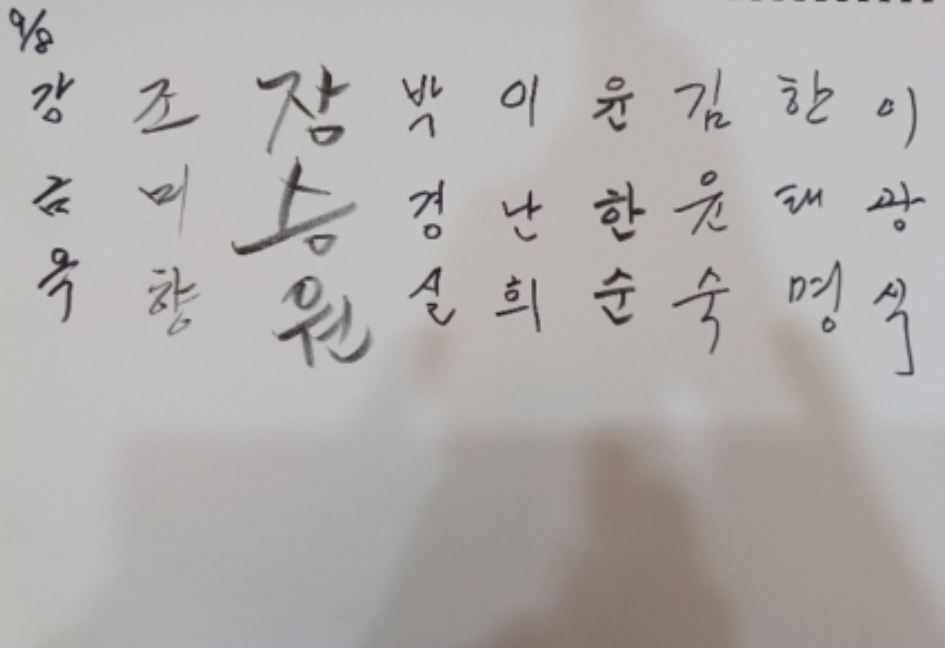 9/8
강금옥
조미향
잠승원
박경실
이난희
윤한순
김윤숙
한태명
이광식